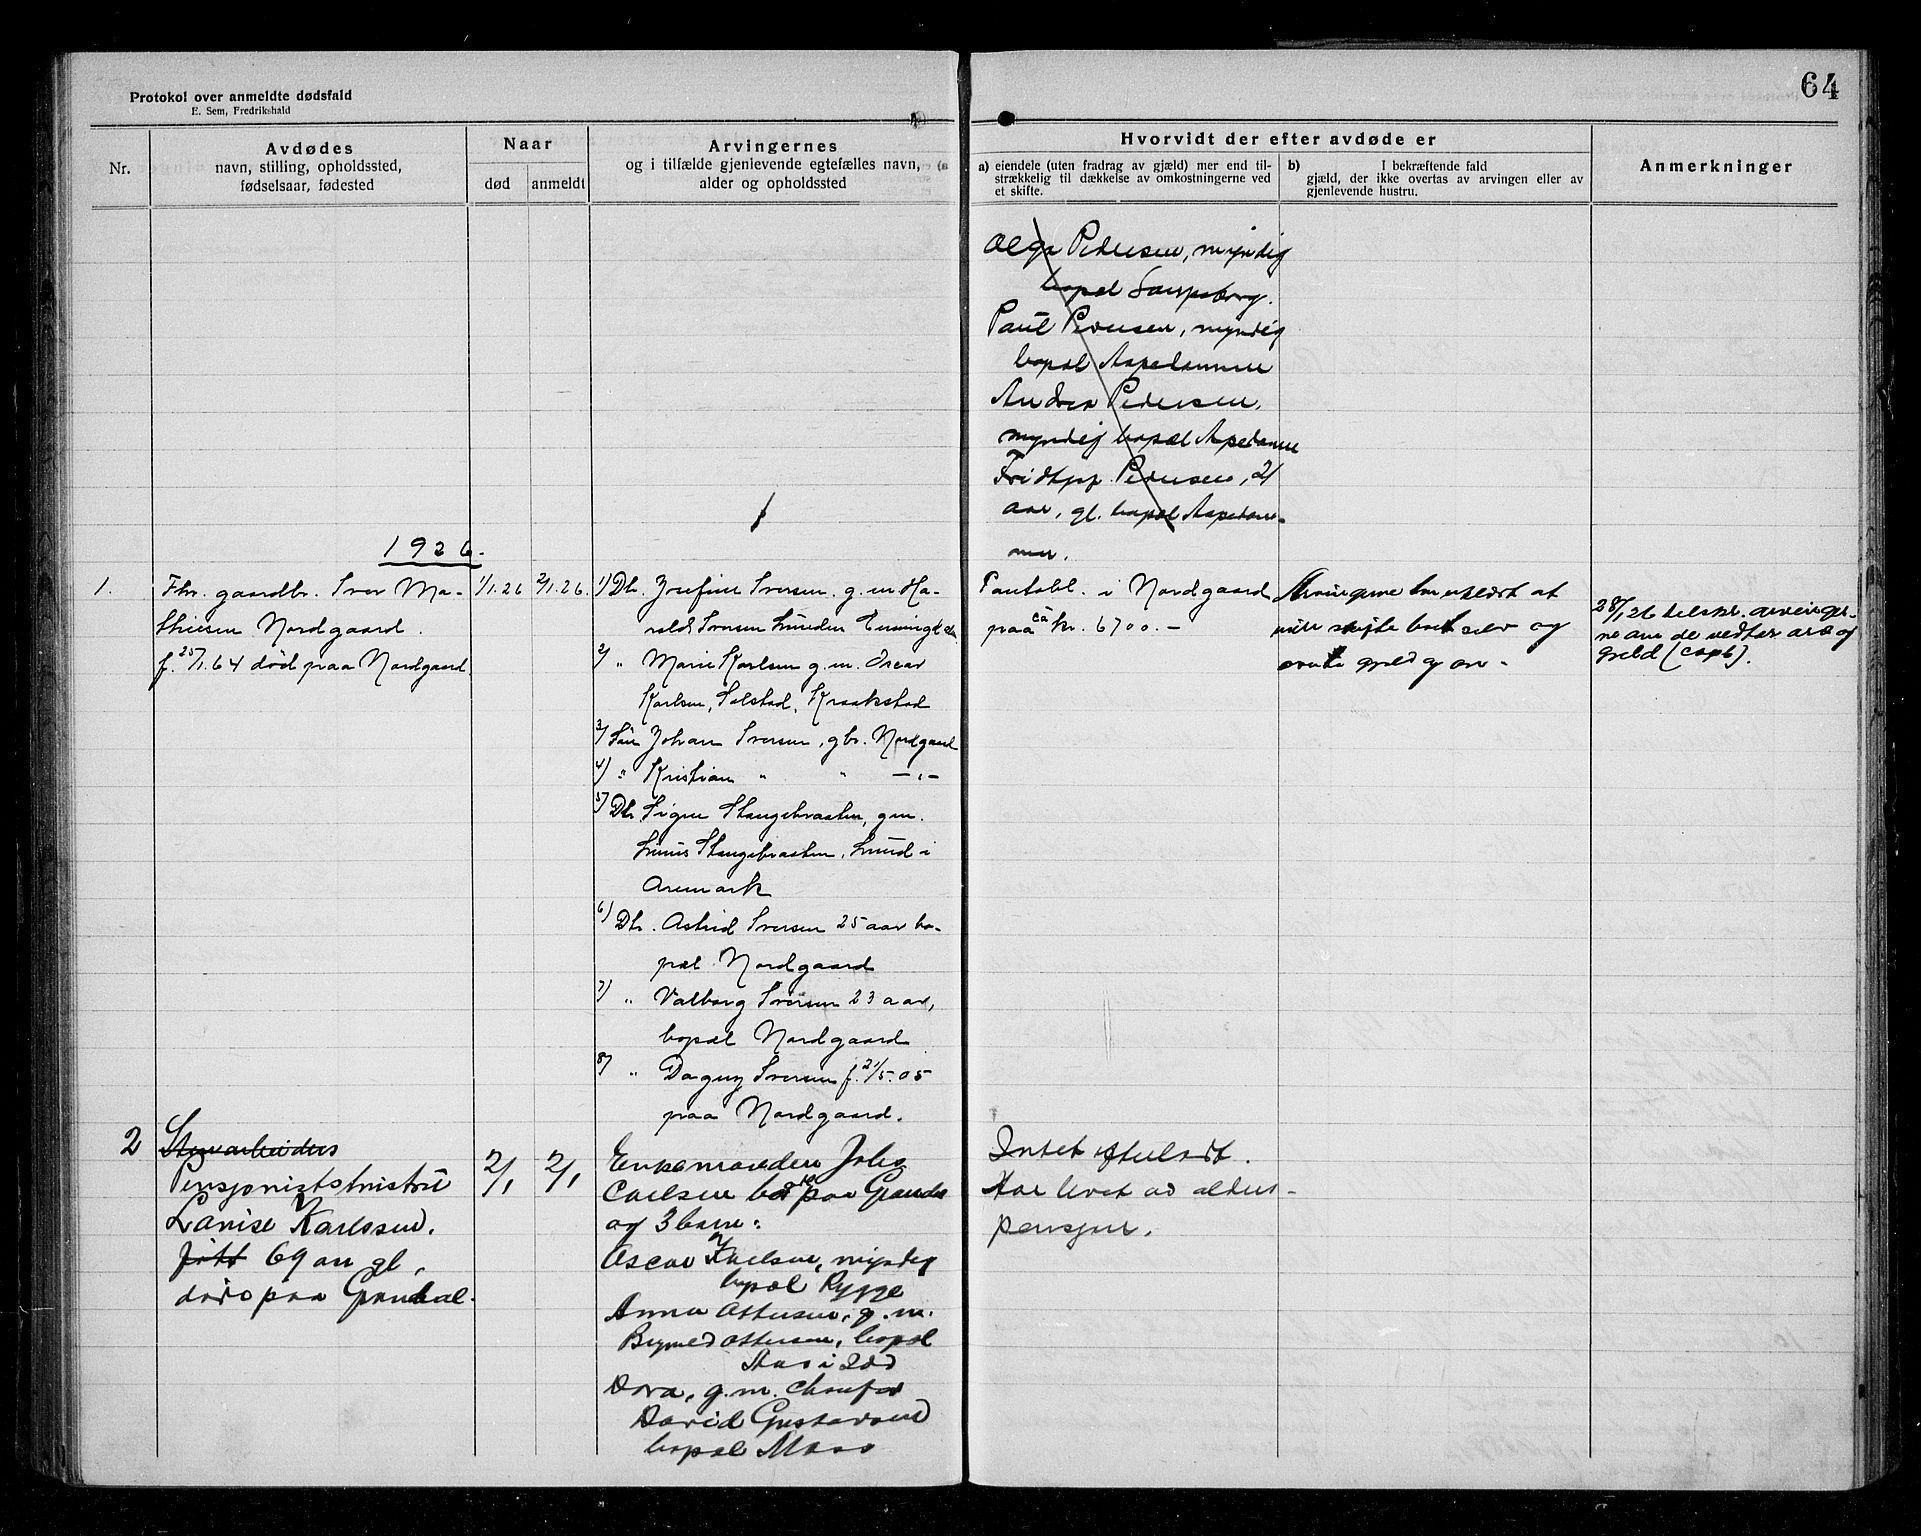 64
Protokol over anmeldte dødsfald
E. Sem, Fredrikshald
Nr.
Avdødes
navn, stilling, opholdssted,
fødselsaar, fødested
Naar
død
anmeldt
Arvingernes
og i tilfælde gjenlevende egtefælles navn,
alder og opholdssted
Hvorvidt der efter avdøde er
a) eiendele (uten fradrag av gjæld) mer end til-
strækkelig til dækkelse av omkostningerne ved
et skifte.
b) I bekræftende fald
gjæld, der ikke overtas av arvingen eller av
gjenlevende hustru.
Anmerkninger
Olga Pedersen, myndig
bopæl Sarpsborg.
Paul Pedersen, myndig
bopæl Aspedammen
Andrea Pedersen,
myndig bopæl Aspedamm
Fridtjof Pedersen, 21
aar, gl. bopæl Aspedam-
men.
1926.
1.
Fhv. gaardbr. Iver Ma-
thiesen Nordgaard.
f. 25/1.64 død paa Nordgaard.
1/1.26
2/1.26.
1) Dtr. Josefine Iversen g.m. Ha-
rald Iversen Linnden
2) " Marie Karlsen g.m. Oscar
Karlsen, Solstad, Kraakstad
3) Søn Johan Iversen, gbr. Nordgaard
4) " Kristian " " -"-
5) Dtr. Signe Stangebraaten, g.m.
Linus Stangebraaten, Lund i
Aremark
6) Dtr. Astrid Iversen 25 aar bo-
pæl Nordgaard
7) " Valborg Iversen 23 aar,
bopæl Nordgaard
8) " Dagny Iversen f. 21/5.05
paa Nordgaard.
Pantobl. i Nordgaard
paa ca kr. 6700.-
Arvingerne har erklært at
ville skifte boet selv og
overta gjæld og arv.
28/1.26 tilskr. arvinger-
ne om de vedtar arv og
gjæld (copb).
2
Stenarbeiders
Pensjonistshustru
Lovise Karlssen.
født 69 aar gl.
død paa Grandal.
2/1
2/1
Enkemanden Johs.
Carlsen boende paa Grandal
og 3 barn:
Oscar Karlsen, myndig
bopæl Rygge
Anna Ottersen, g.m.
Ottersen, bopæl
Aas i Idd
Dora, g.m. chauffør
David Gustavsen
bopæl Moss
Intet efterladt.
Har levet av alders-
pensjon.